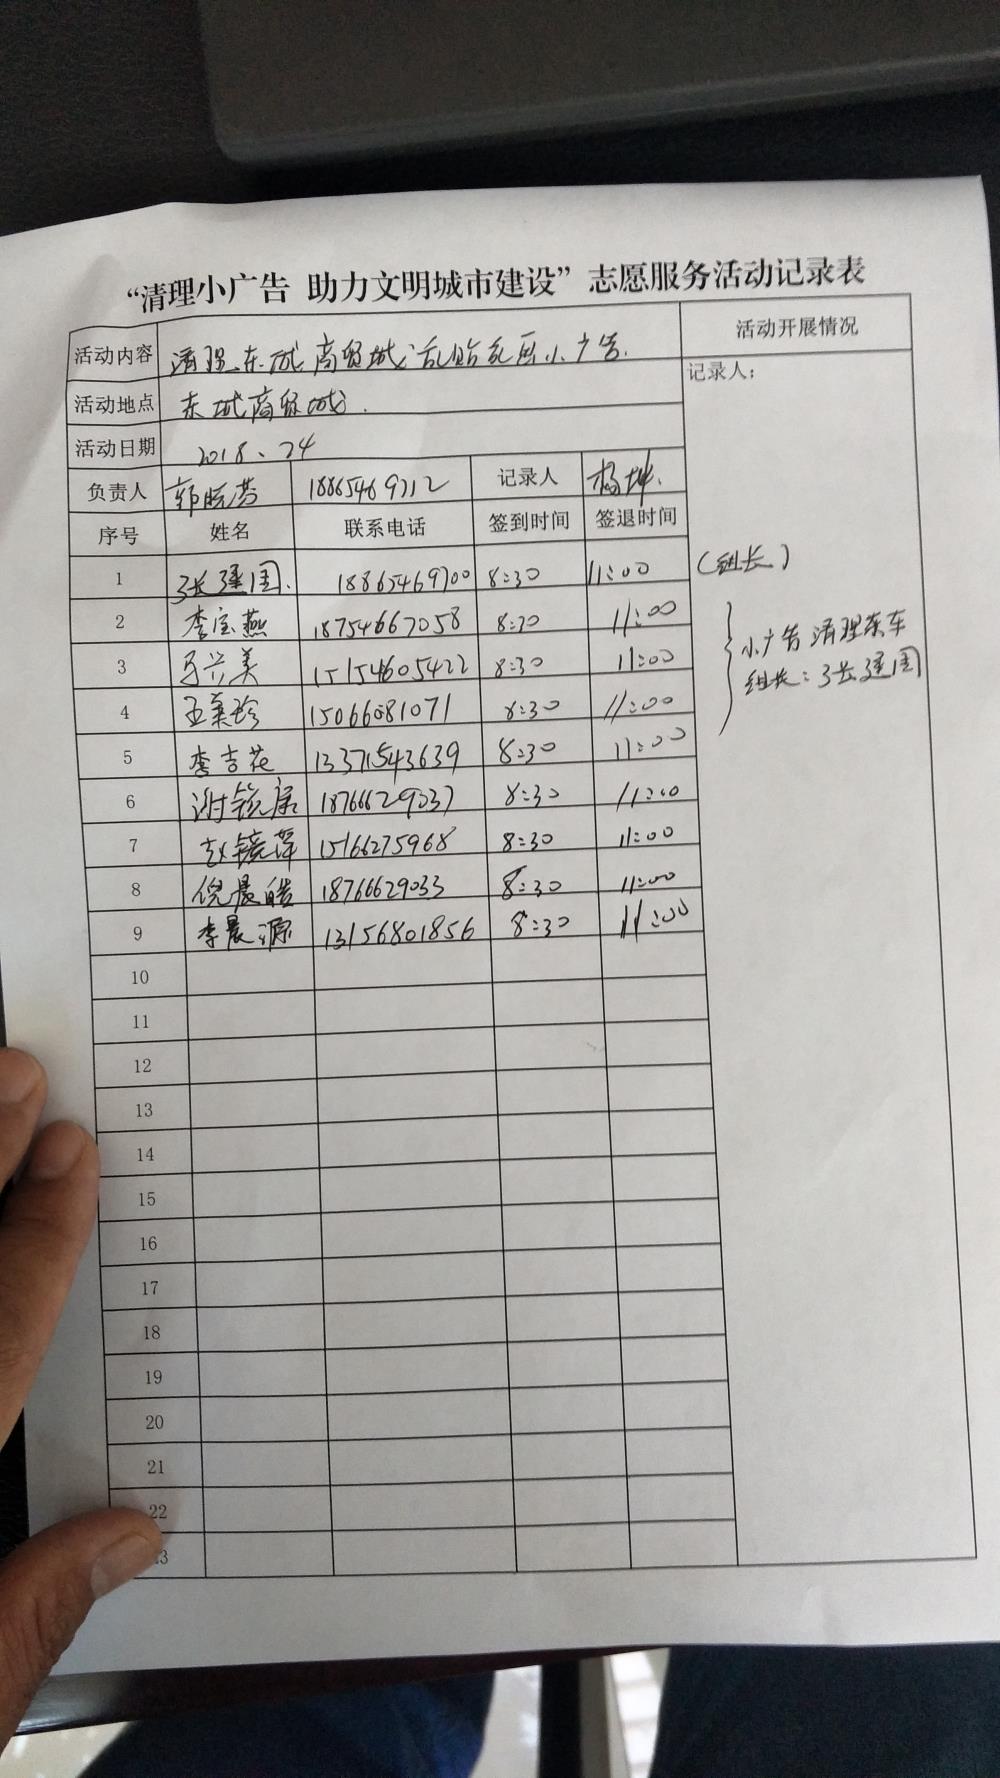 “清理小广告 助力文明城市建设”志愿服务活动记录表
活动内容 清理东城商贸城乱贴乱画小广告. 活动开展情况
活动地点 东城商贸城. 记录人:
活动日期 2018、24
负责人 郭晓芳 18865469712 记录人 杨坤.
序号 姓名 联系电话 签到时间 签退时间
1 张建国. 18865469700 8:30 11:00 (组长)
2 李宝燕 18754667058 8:30 11:00
3 马兴美 15154605422 8:30 11:00 小广告清理东车
组长:张建国
4 王秉珍 15066081071 8:30 11:00
5 李吉花 13371543639 8:30 11:00
6 谢锐宸 18766629037 8:30 11:00
7 赵镜萍 15166275968 8:30 11:00
8 倪晨皓 18766629033 8:30 11:00
9 李晨源 13156801856 8:30 11:00
10
11
12
13
14
15
16
17
18
19
20
21
22